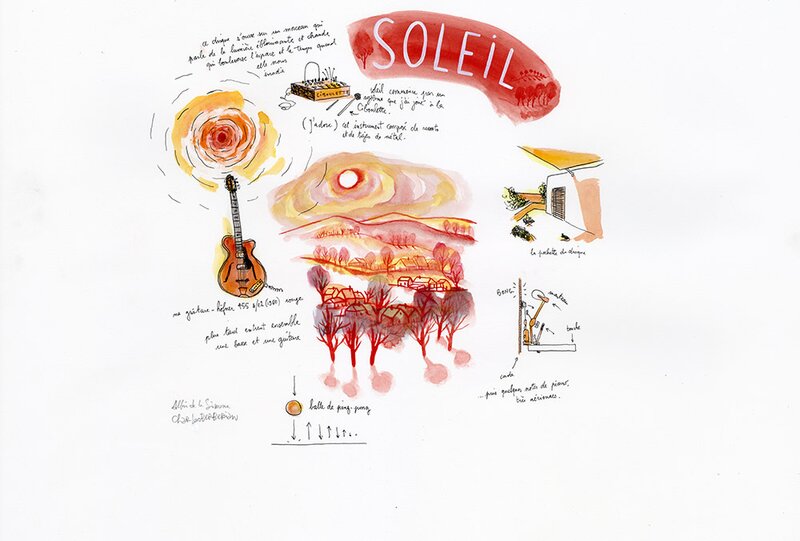 SOLEIL
Ce disque s'ouvre sur un morceau qui
parle de la lumière éblouissante et chaude
qui bouleverse l'espace et le temps quand
elle nous
CIBOULETTE
soleil commence par un
système que j'ai joué à la
Ciboulette.
(J'adore) cet instrument composé de ressorts
et de tiges de métal.
la pochette du disque
ma guitare - höfner 455 rouge
plus tard entrent ensemble
une basse et une guitare
BONG!
marteau
touche
corde
puis quelques notes de piano,
très aériennes.
balle de ping-pong
Albin de la Simone